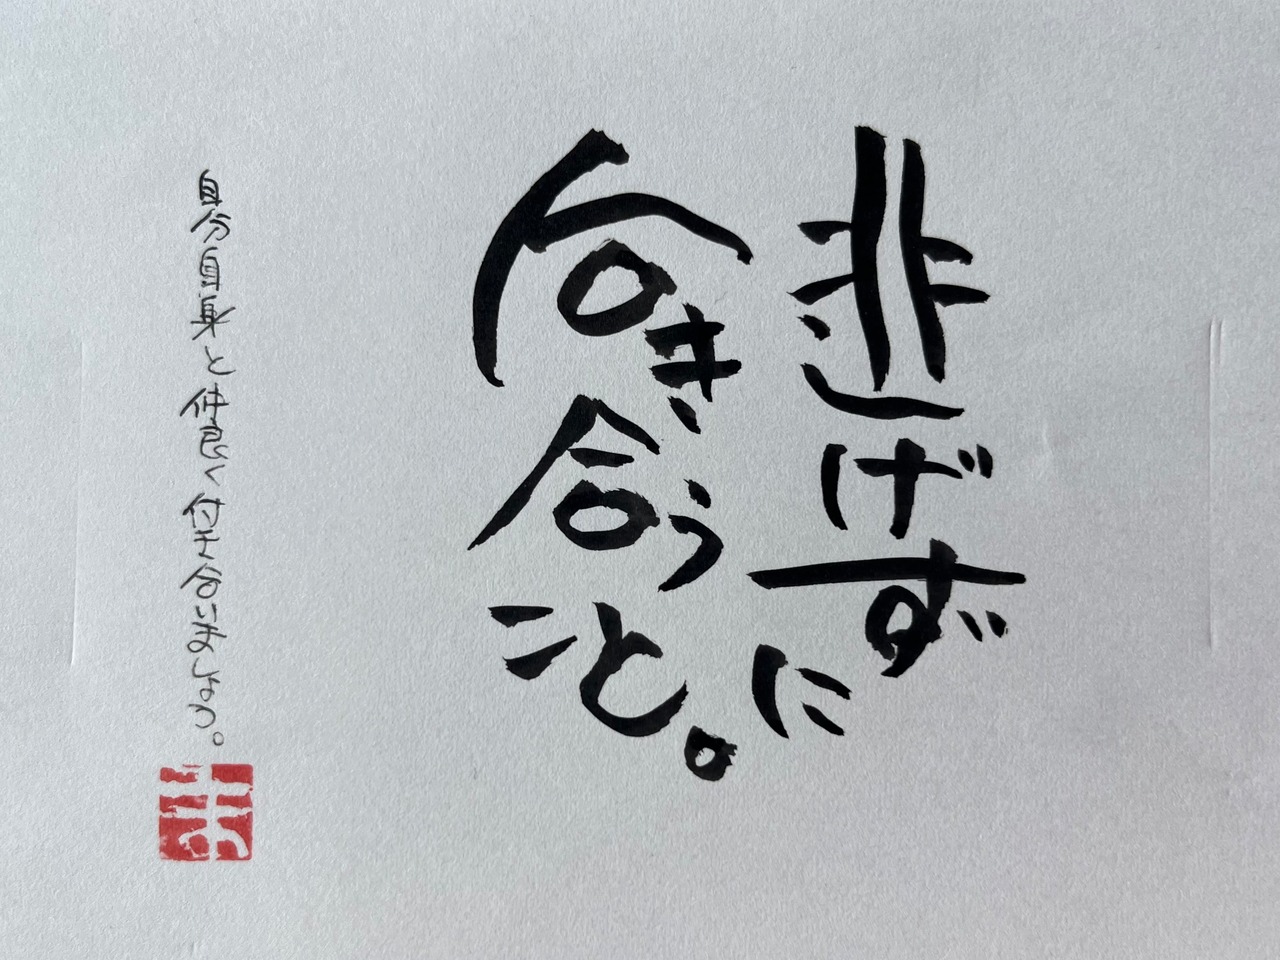 逃げずに
向き合うこと。
自分自身と仲良く付き合いましょう。